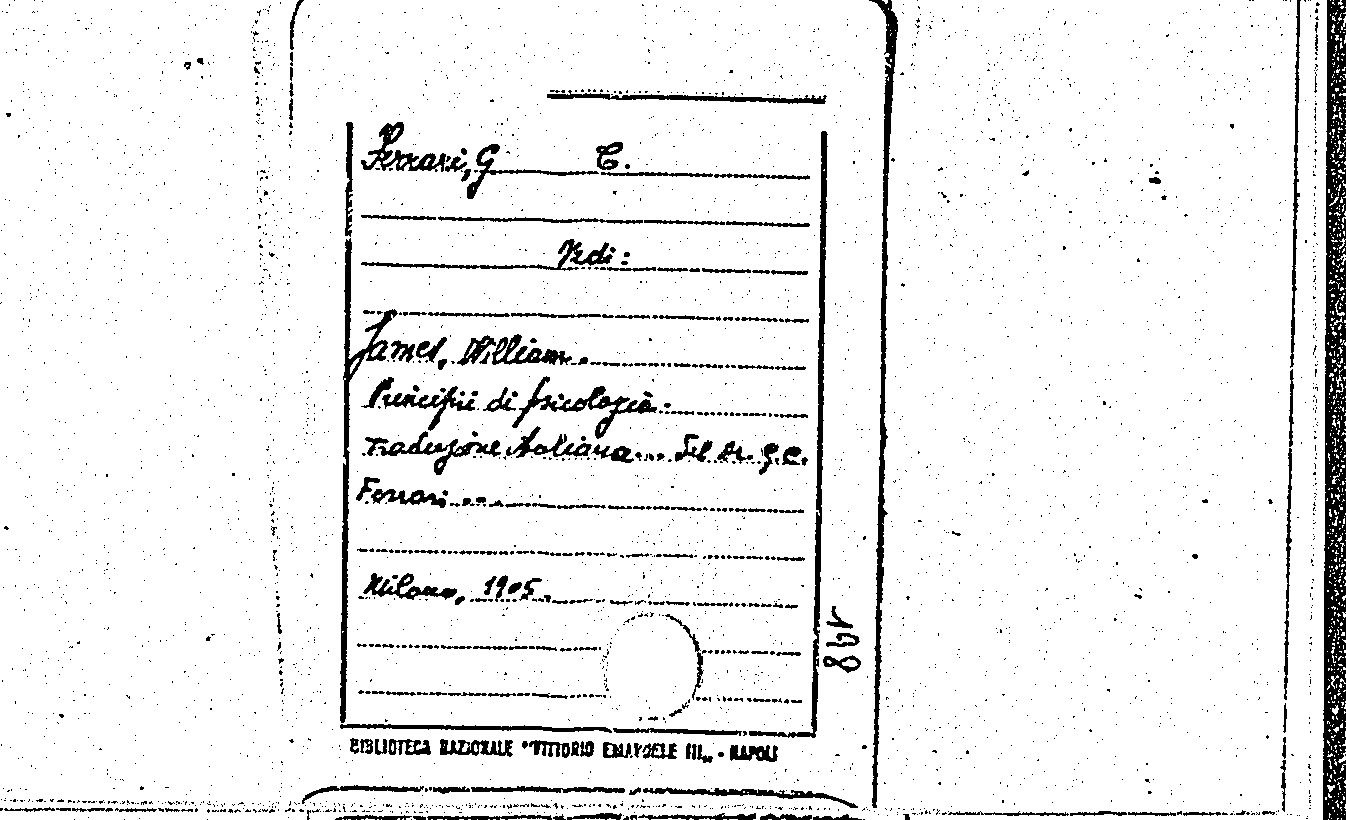 Ferrari, G C.
Vedi:
James, William.
Principii di psicologia.
Traduzione italiana... del Dr. G.C.
Ferrari....
Milano, 1905.
148
BIBLIOTECA NAZIONALE "VITTORIO EMANUELE III„ - NAPOLI